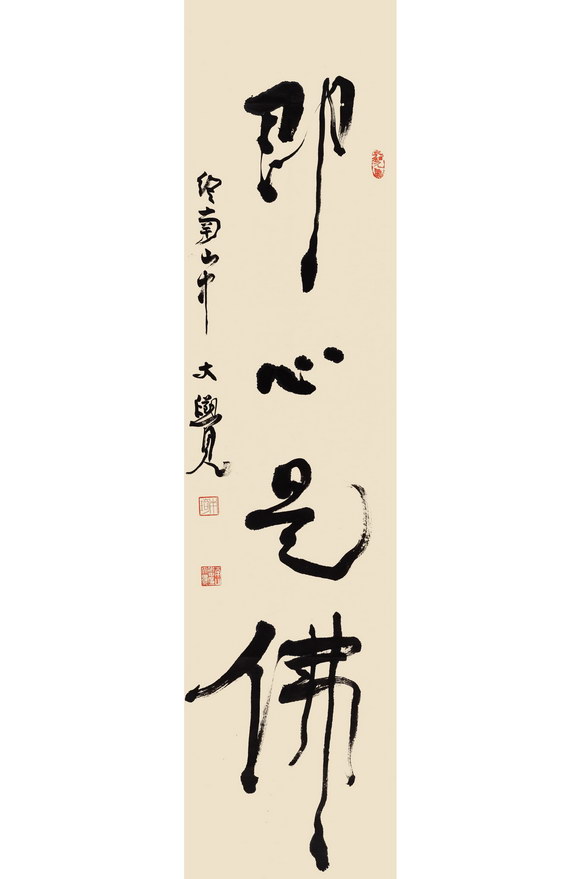 即心是佛
终南山中 大覺